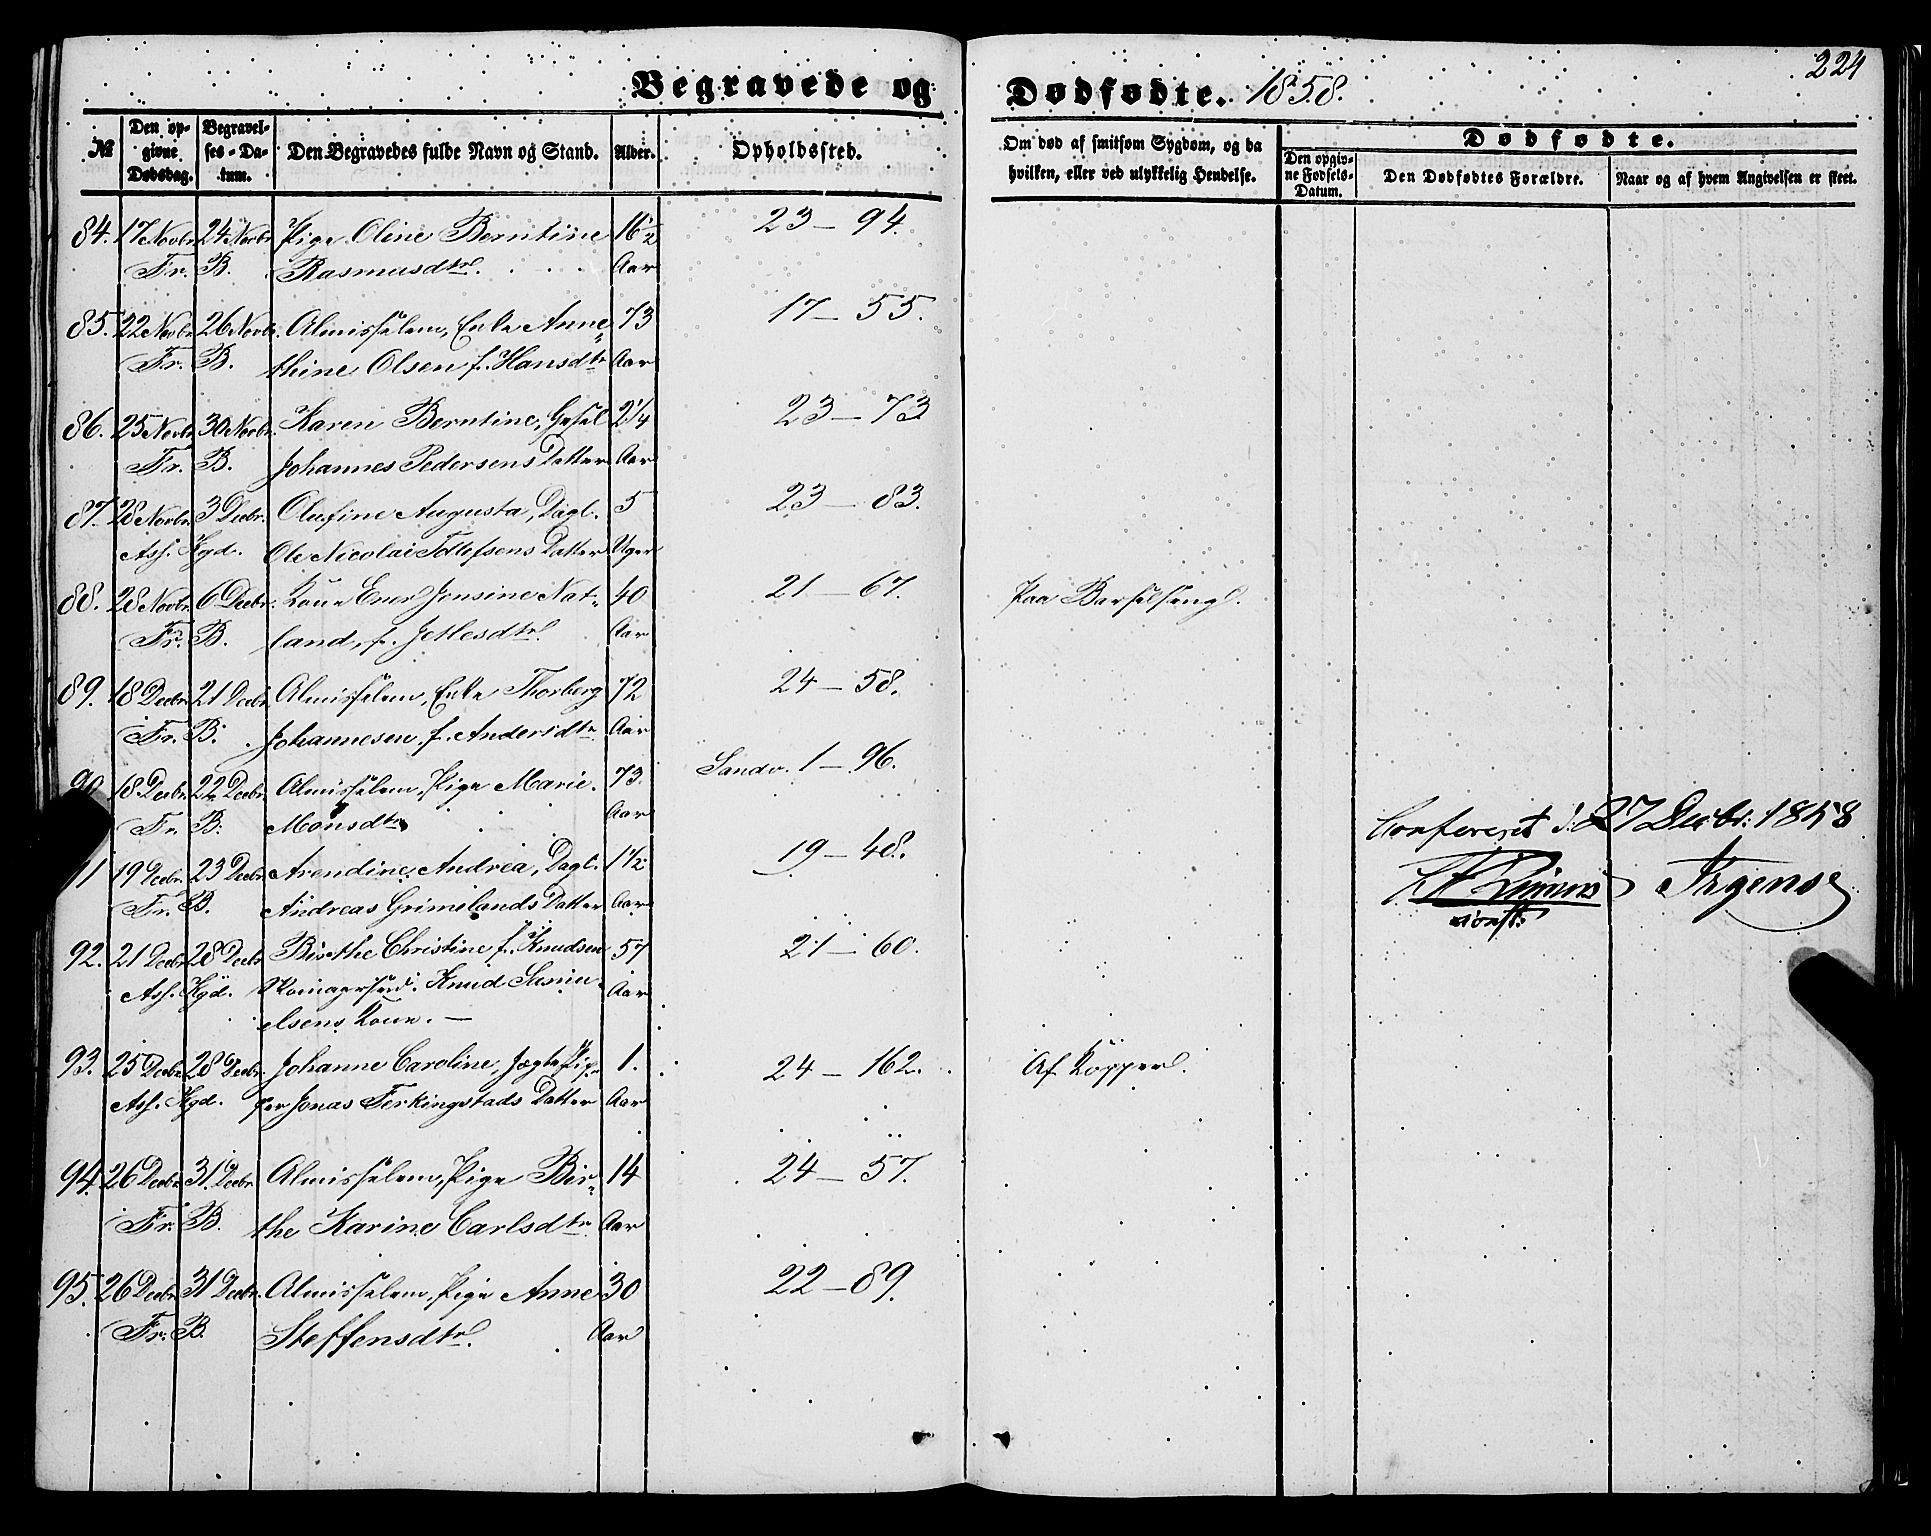 Begravede og Dødfødte. 1858.
224
№
Den opgivne Dødsdag.
Begravelses-Datum.
Den Begravedes fulde Navn og Stand.
Alder.
Opholdssted.
Om død af smitsom Sygdom, og da hvilken, eller ved ulykkelig Hendelse.
Dødfødte.
Den opgivne Fødsels-Datum.
Den Dødfødtes Forældre.
Naar og af hvem Angivelsen er skeet.
84. 17 Novbr. 24 Novbr. Pige Oline Berntine 16 1/2 23 – 94.
Fr. B. Rasmusdtr. Aar
85. 22 Novbr. 26 Novbr. Almisselem, Enke Anne 73 17 – 55.
Fr. B. thine Olsen f. Hansdtr. Aar
86. 25 Novbr. 30 Novbr. Karen Berntine, Gesel 2 1/4 23 – 73
Fr. B. Johannes Pedersens Datter Aar
87. 28 Novbr. 3 Decbr. Olufine Augusta, Dagl. 5 23 – 83.
Ass. Kgd. Ole Nicolai Tollefsens Datter Uger
88. 28 Novbr. 6 Decbr. Kone Jonsine Nat- 40 21 – 67. Paa Barselseng.
Fr. B. land, f. Jetlesdtr. Aar
89. 18 Decbr. 21 Decbr. Almisselem, Enke Thorberg 72 24 – 58.
Fr. B. Johannesen f. Andersdtr. Aar
90 18 Decbr. 22 Decbr. Almisselem, Pige Marie 73. Sandv. 1 – 96.
Fr. B. Monsdtr. Aar
Confereret d. 27 Decbr. 1858
1 19 Decbr. 23 Decbr. Arendine Andrea, Dagl. 1 1/2 19 – 48.
Fr. B. Andreas Grimelands Datter Aar
92. 21 Decbr. 28 Decbr. Birthe Christine f. Knudsen 57 21 – 60.
Ass. Kgd. Knud Samu- Aar
elsens Kone. –
93. 25 Decbr. 28 Decbr. Johanne Caroline, Jægteskip- 1. 24 – 162. Af Kopper.
Ass. Kgd. per Jonas Ferkingstads Datter Aar
94. 26 Decbr. 31. Decbr. Almisselem, Pige Bir- 14 24 – 57.
Fr. B. the Karine Carlsdtr. Aar
95. 26 Decbr. 31 Decbr. Almisselem, Pige Anne 30 22 – 89.
Fr. B. Steffensdtr. Aar